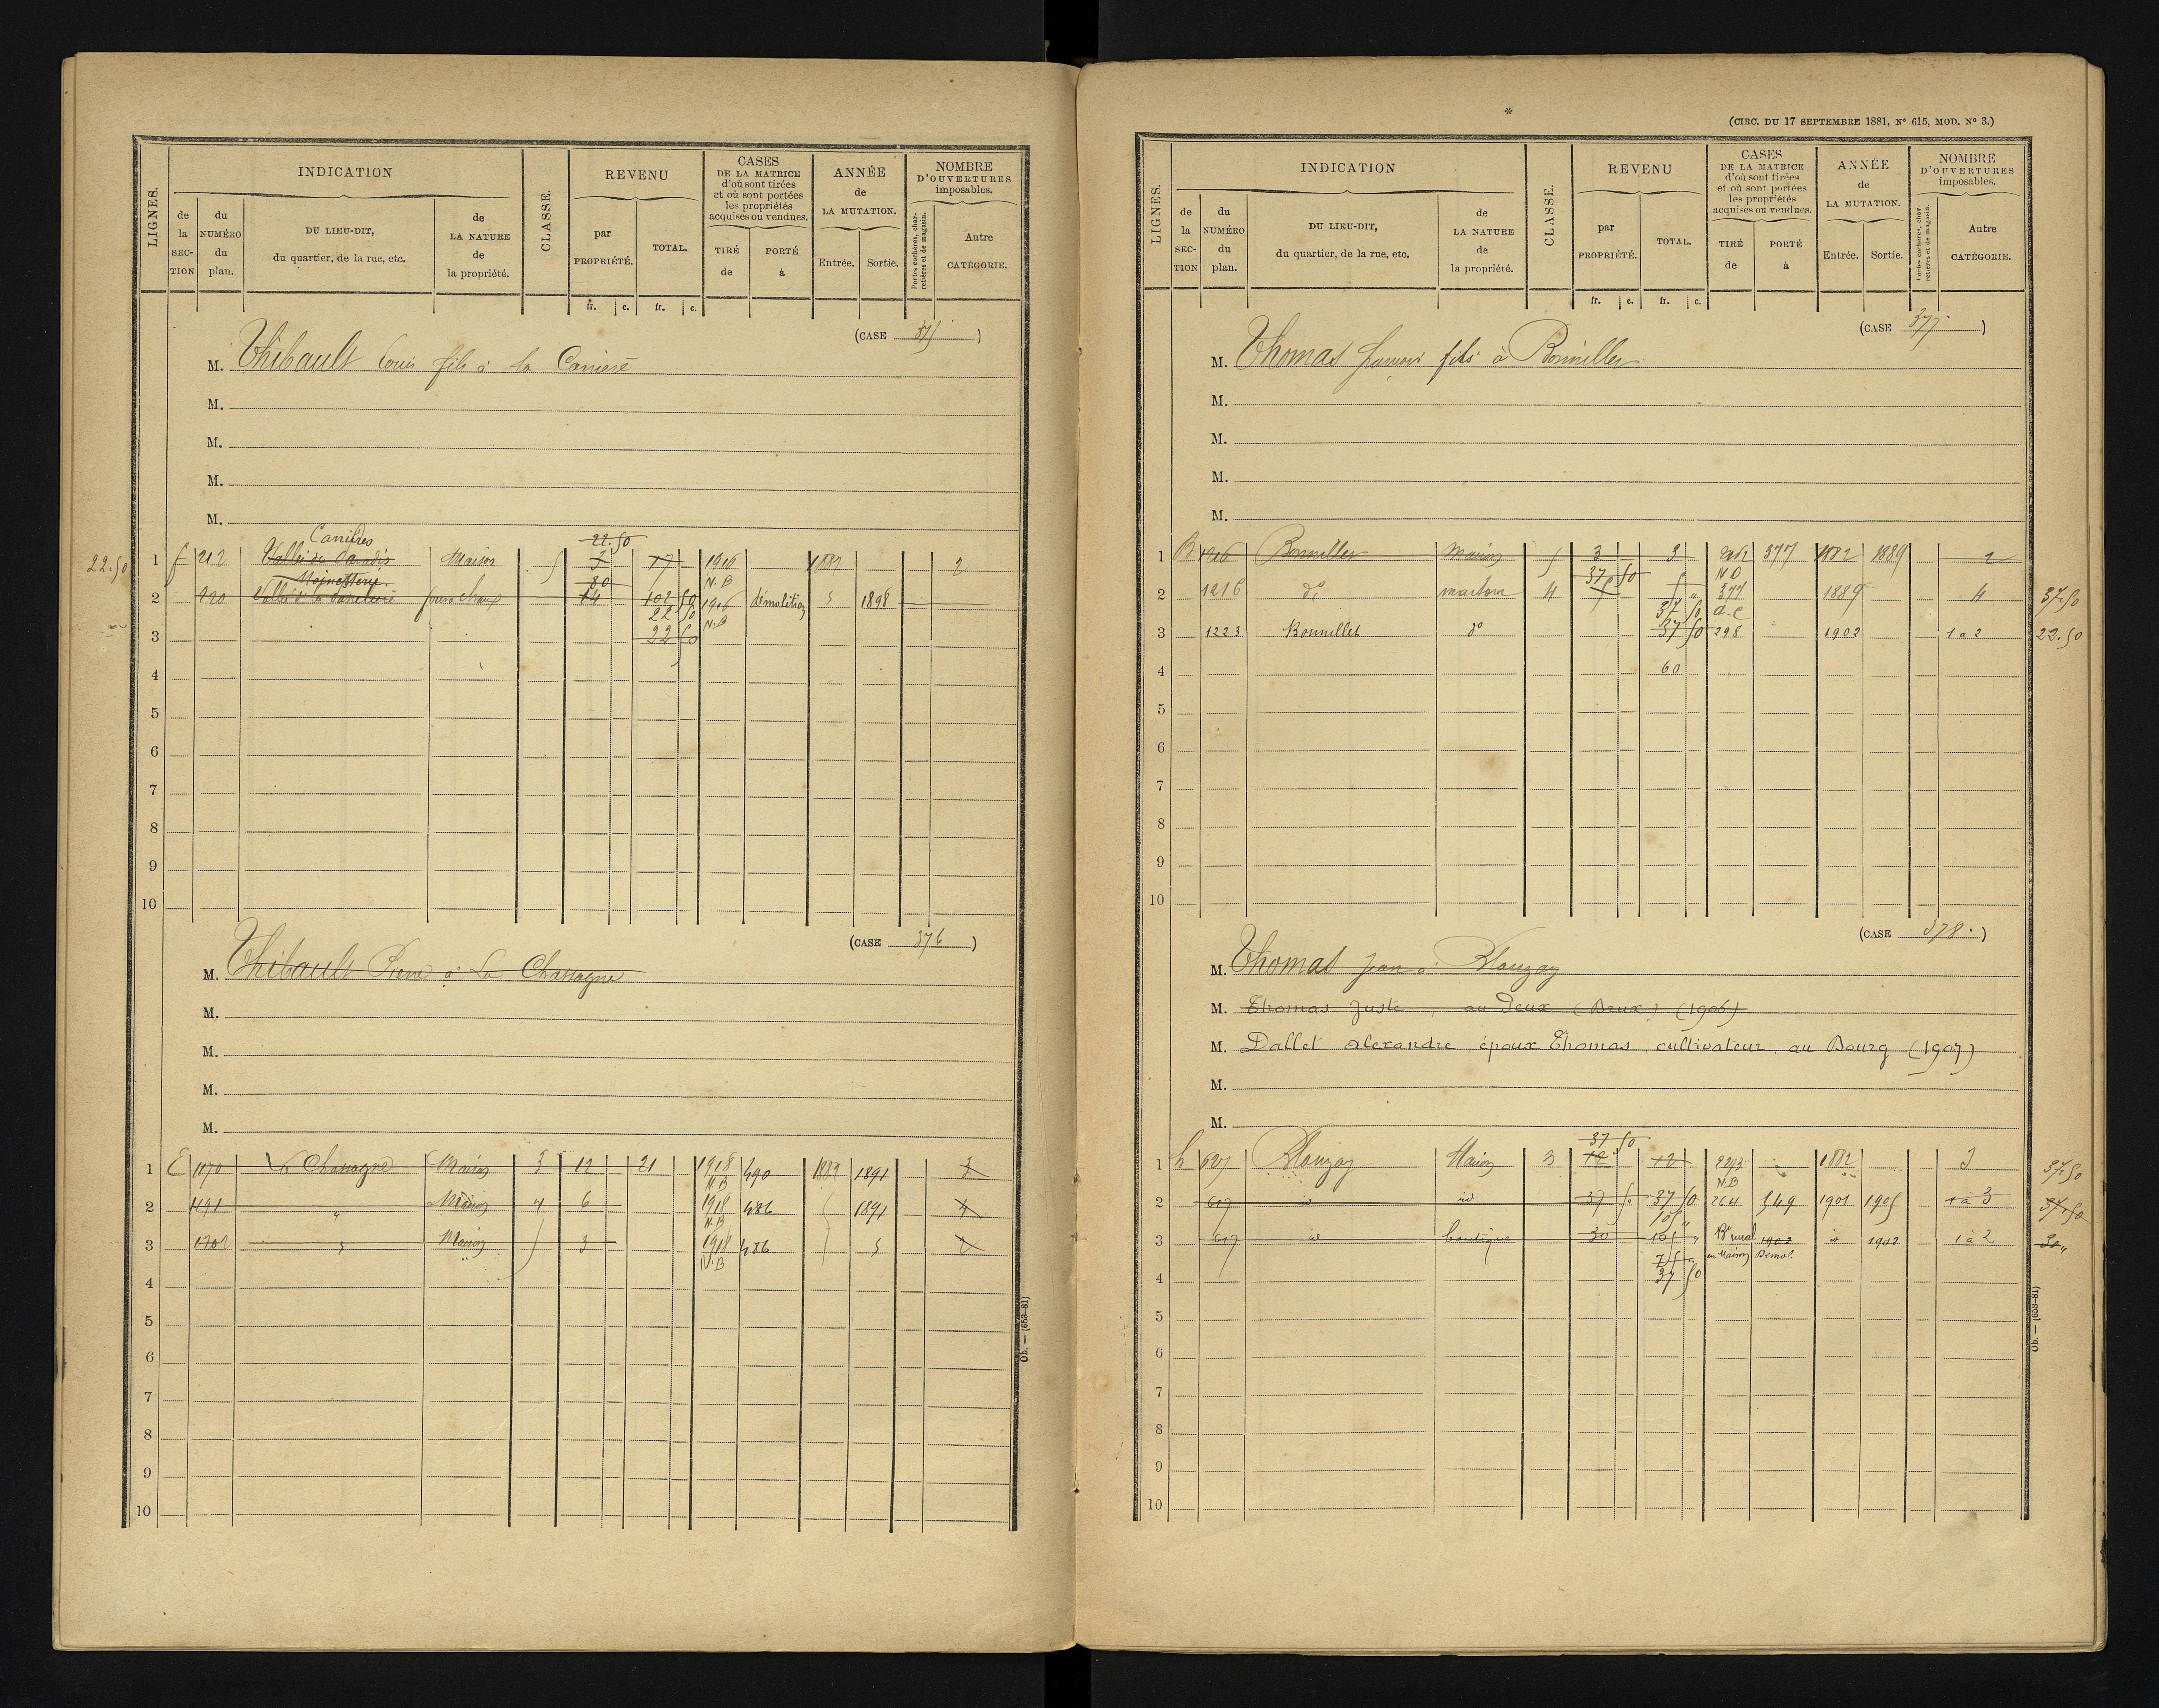 LIGNES.
INDICATION
de la SECTION
du NUMÉRO du plan.
DU LIEU-DIT, du quartier, de la rue, etc.
de LA NATURE de la propriété.
CLASSE.
REVENU
par PROPRIÉTÉ.
TOTAL.
CASES DE LA MATRICE d'où sont tirées et où sont portées les propriétés acquises ou vendues.
TIRÉ de
PORTÉ à
ANNÉE de LA MUTATION.
Entrée.
Sortie.
NOMBRE D'OUVERTURES imposables.
Portes cochères, charretières et de magasin.
Autre CATÉGORIE.
fr. c. fr. c.
(CASE 375)
M. Thibault Louis fils à la Carriere
M.
M.
M.
M.
Carrières
22.50
22.50 1 f 212 Maison 5 3 17 1916 N.B 1882 2
80
2 220 four à chaux 14 102 50 1916 N.B démolition 1898
22 50
3 22 50
4
5
6
7
8
9
10
(CASE 376)
M. Thibault Pierre à La Chassagne
M.
M.
M.
M.
1 E 1170 La Chassagne Maison 3 12 21 1918 N.B 490 1882 1891 3
2 1191 " Maison 4 6 1918 N.B 486 1891 4
3 1702 Maison 5 3 1918 N.B 486 2
4
5
6
7
8
9
10
Ob. — (653-81)
*
(CIRC. DU 17 SEPTEMBRE 1881, N° 615, MOD. N° 3.)
LIGNES.
INDICATION
de la SECTION
du NUMÉRO du plan.
DU LIEU-DIT, du quartier, de la rue, etc.
de LA NATURE de la propriété.
CLASSE.
REVENU
par PROPRIÉTÉ.
TOTAL.
CASES DE LA MATRICE d'où sont tirées et où sont portées les propriétés acquises ou vendues.
TIRÉ de
PORTÉ à
ANNÉE de LA MUTATION.
Entrée.
Sortie.
NOMBRE D'OUVERTURES imposables.
Portes cochères, charretières et de magasin.
Autre CATÉGORIE.
fr. c. fr. c.
(CASE 377)
M. Thomas fils à Bonnillet
M.
M.
M.
M.
1 B 1216 Bonnillet Maison 5 3 3 377 1882 1889 2
37 50
2 1216 d° maison 4 377 1889 4 37.50
37 50 d.c
3 1223 Bonnillet d° 37 50 298 1902 1 à 2 22.50
4 60
5
6
7
8
9
10
(CASE 378.)
M. Thomas Jean à Blanzay
M. Thomas Juste, au Deux (Brux) (1906)
M. Dallet Alexandre époux Thomas, cultivateur, au Bourg (1907)
M.
M.
37 50
1 h 627 Blanzay Maison 3 12 12 N.B 1882 3 37.50
2 617 id id 37 50 37 50 264 549 1901 1905 1 à 3 37.50
105 "
3 617 id boutique 30 "  Bt rural 1902 id 1902 1 à 2 30 "
75 " en Maison Démol.
4 37 50
5
6
7
8
9
10
Ob. — (653-81)